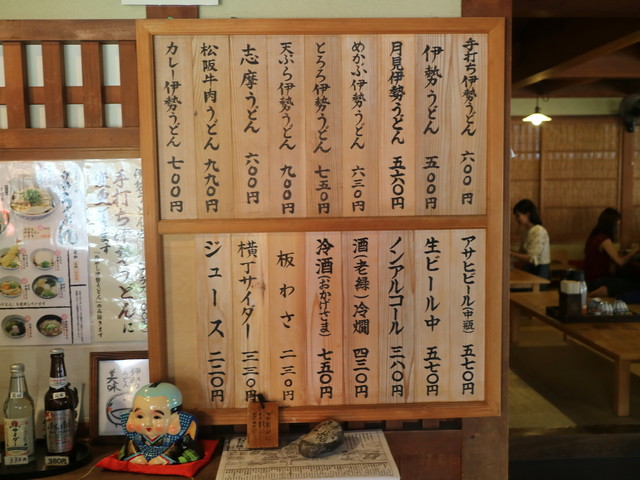 手打ち伊勢うどん 六００円
伊勢うどん 五００円
月見伊勢うどん 五六０円
めかぶ伊勢うどん 六三０円
とろろ伊勢うどん 七五０円
天ぷら伊勢うどん 九００円
志摩うどん 六００円
松阪牛肉うどん 九九０円
カレー伊勢うどん 七００円
アサヒビール(中瓶) 五七０円
生ビール中 五七０円
ノンアルコール 三八０円
酒(老緑)冷燗 四三０円
冷酒(おかげさま) 七五０円
板わさ 二三０円
横丁サイダー 三三０円
ジュース 二二０円
手打ち伊勢うどんに
美味
330円
380円